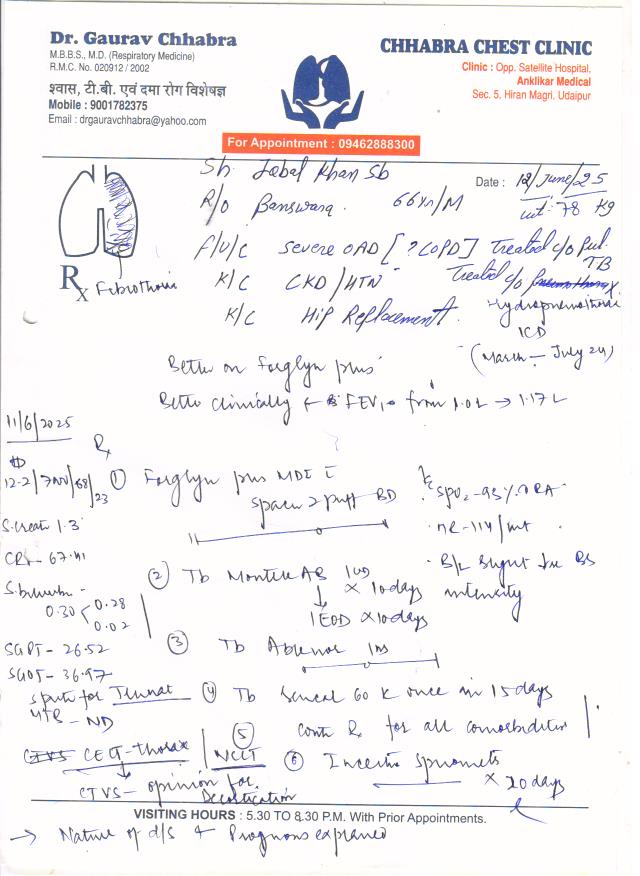 Dr. Gaurav Chhabra
M.B.B.S., M.D. (Respiratory Medicine)
R.M.C. No. 020912 / 2002
श्वास, टी.बी. एवं दमा रोग विशेषज्ञ
Mobile : 9001782375
Email : drgauravchhabra@yahoo.com
CHHABRA CHEST CLINIC
Clinic : Opp. Satellite Hospital,
Anklikar Medical
Sec. 5. Hiran Magri, Udaipur
For Appointment : 09462888300
Sh. Iqbal Khan Sb
Date : 12/June/25
R/O Banswara. 66Yr/M
wt. 78 Kg
F/U/C Severe OAD [?COPD] Treated c/o Pul. TB
Rx Fibrothorax
K/C CKD/HTN Treated c/o
Hydropneumothorax
ICD
K/C Hip Replacement.
(March - July 24)
Better on Forglyn plus
Better clinically FEV1 from 1.02 → 1.17 L
11/6/2025
Rx
12.2/7400/68/23
① Forglyn plus MDI
spacer 2 puff BD
SPO2 - 93% RA
S.Creat 1.3
HR - 114/mt
CRP - 67.41
B/L BS
intensity
② Tb Montek AB 1OD
x 10days
↓
1EOD x 10days
0.30 < 0.28
0.02
③ Tb
SGPT - 26.52
SGOT - 36.97
for Truenat
MTB - ND
④ Tb 60 K once in 15 days
⑤ Contn Rx for all comorbidities
CECT-thorax / NCCT
⑥ Incentive Spirometry
x 20 days
CTVS - opinion for
Decortication
VISITING HOURS : 5.30 TO 8.30 P.M. With Prior Appointments.
→ Nature of d/s + Prognosis explained